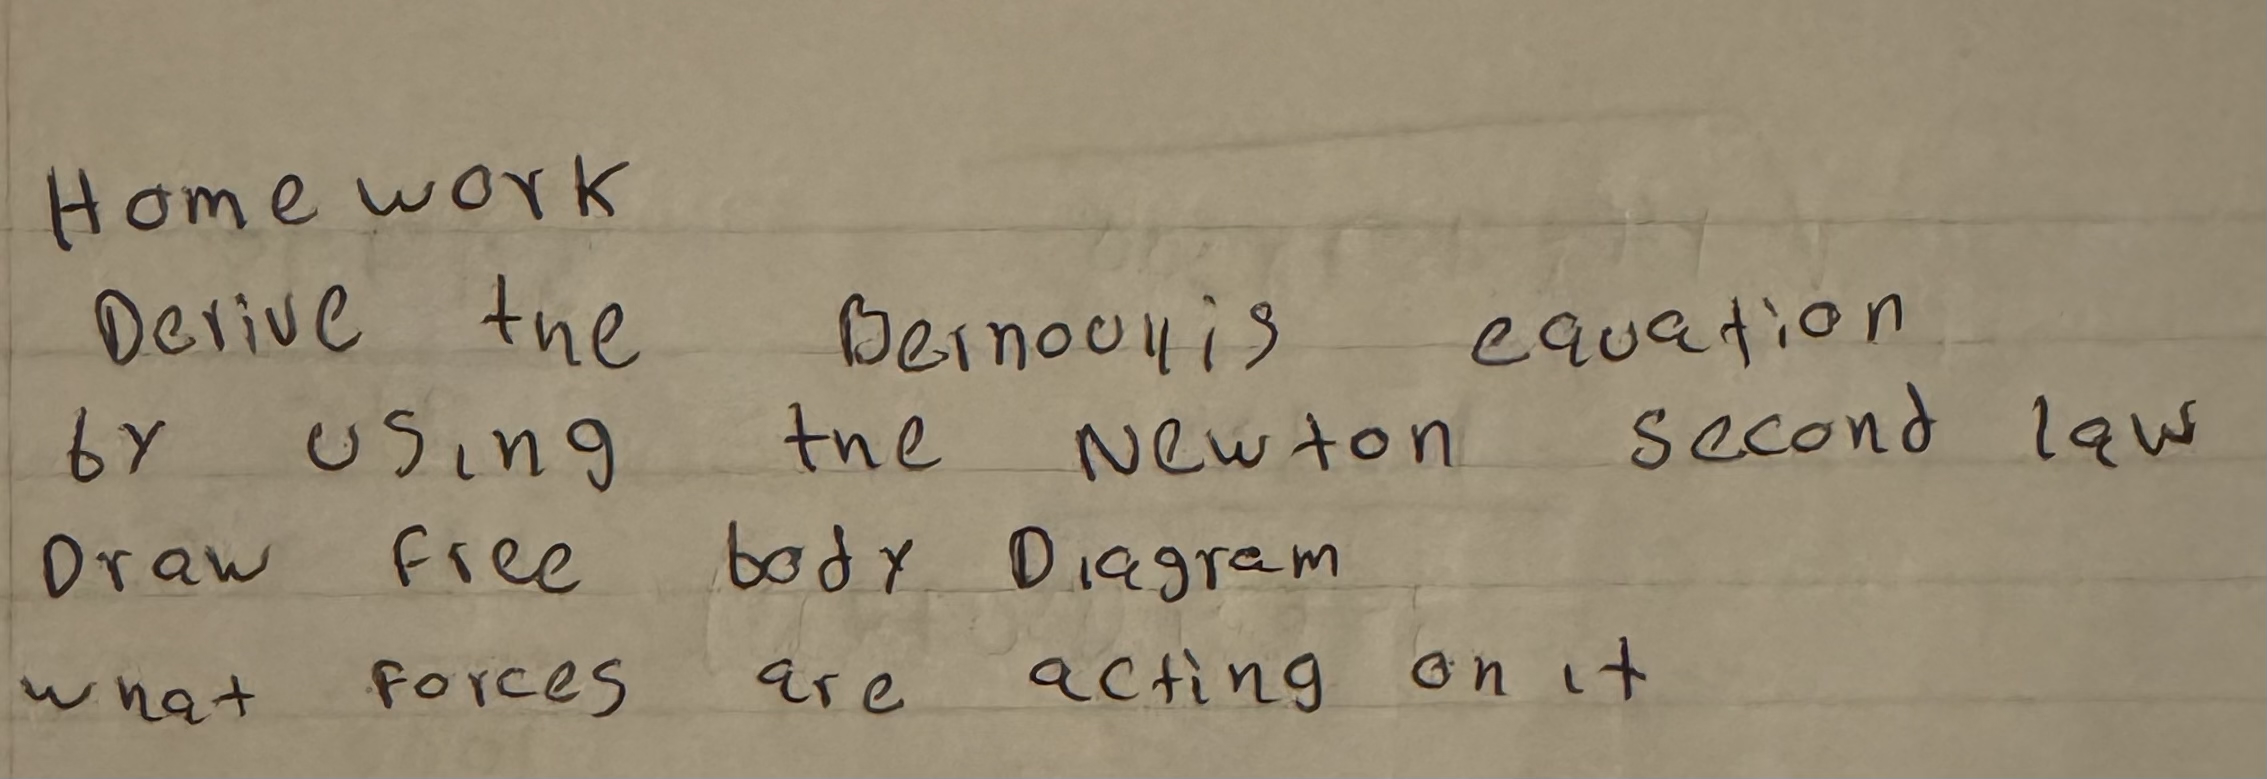 Home work
Derive the Bernoullis equation
by using the Newton second law
Draw free body Diagram
what forces are acting on it